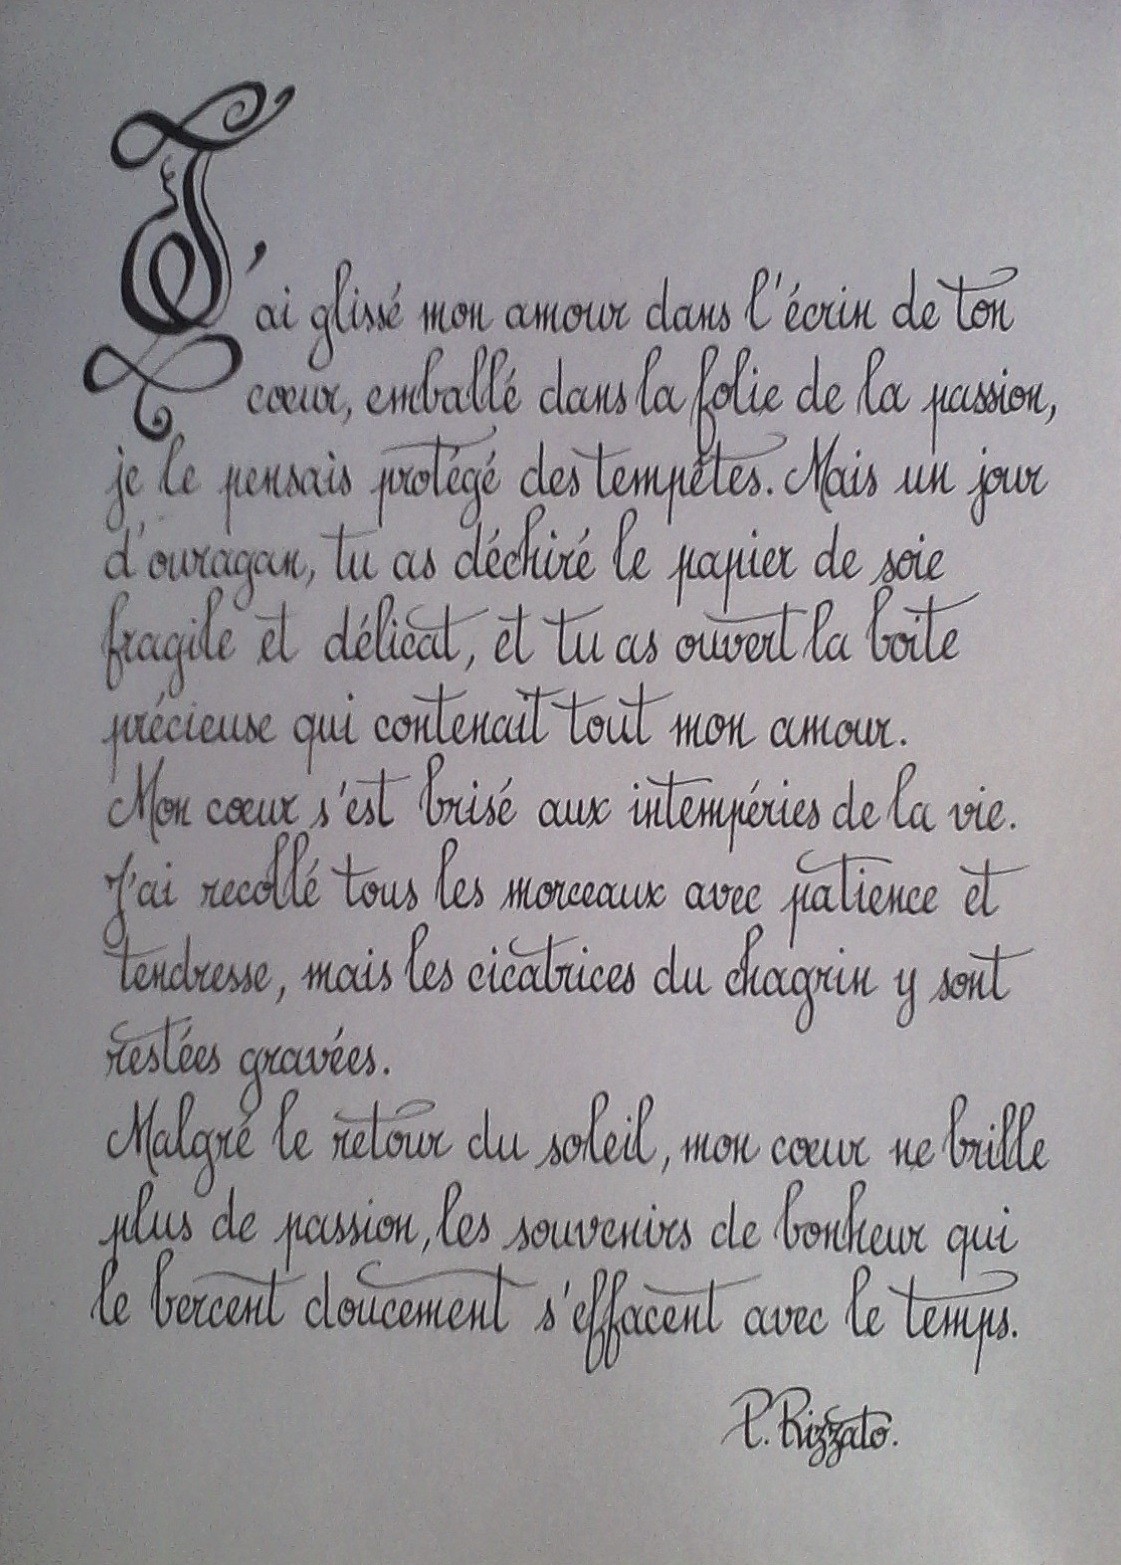 J'ai glissé mon amour dans l'écrin de ton
cœur, emballé dans la folie de la passion,
je le pensais protégé des tempêtes. Mais un jour
d'ouragan, tu as déchiré le papier de soie
fragile et délicat, et tu as ouvert la boite
précieuse qui contenait tout mon amour.
Mon cœur s'est brisé aux intempéries de la vie.
J'ai recollé tous les morceaux avec patience et
tendresse, mais les cicatrices du chagrin y sont
restées gravées.
Malgré le retour du soleil, mon cœur ne brille
plus de passion, les souvenirs de bonheur qui
le bercent doucement s'effacent avec le temps.
P. Rizzato.